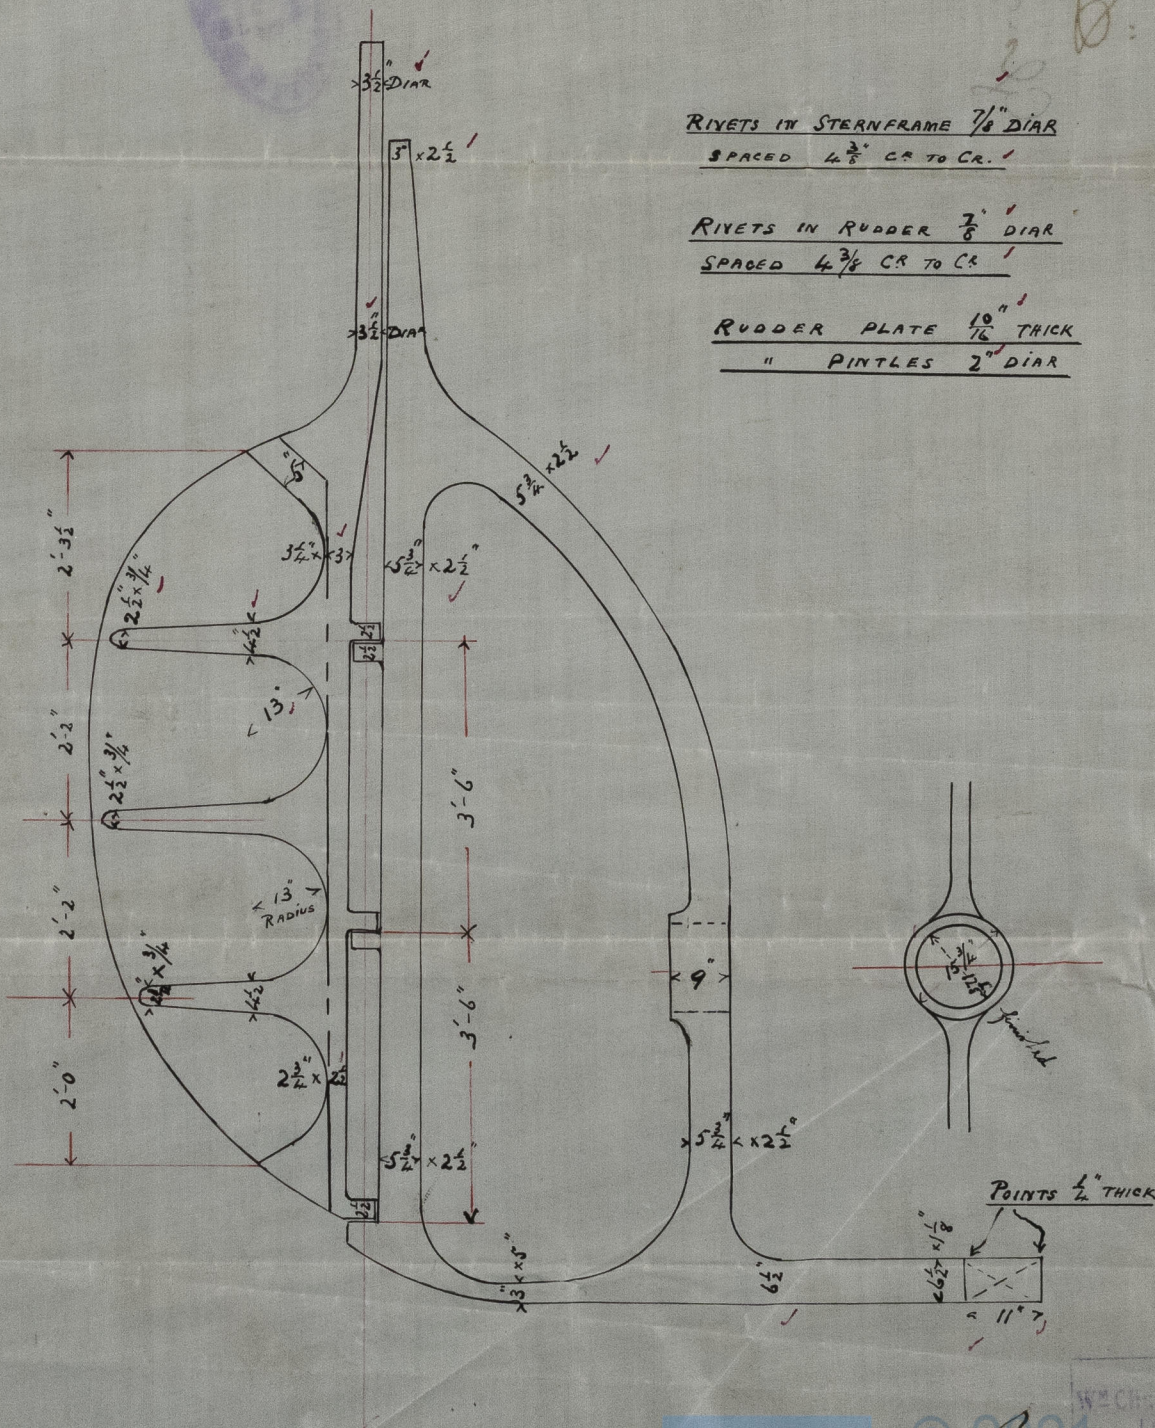 3½" DIAR
3" × 2½
RIVETS IN STERNFRAME 7/8" DIAR
SPACED 4 3/8" CR TO CR.
RIVETS IN RUDDER 7/8" DIAR
SPACED 4 3/8 CR TO CR
RUDDER PLATE 10/16" THICK
" PINTLES 2" DIAR
3½" DIAR
5"
5¾ × 2½
2'-3½"
3¼" × 3
5¾ × 2½"
2½" × ¾"
4½"
2½
2½
13"
2'-2"
2½" × ¾"
3'-6"
2'-2"
13"
RADIUS
2½" × ¾"
4½
9"
finished
3'-6"
2'-0"
2¾" × 2½
5¾" × 2½"
5¾" × 2½"
2½
POINTS ¼" THICK
3" × 5"
6½"
6½" × 1⅛"
11"
Wm